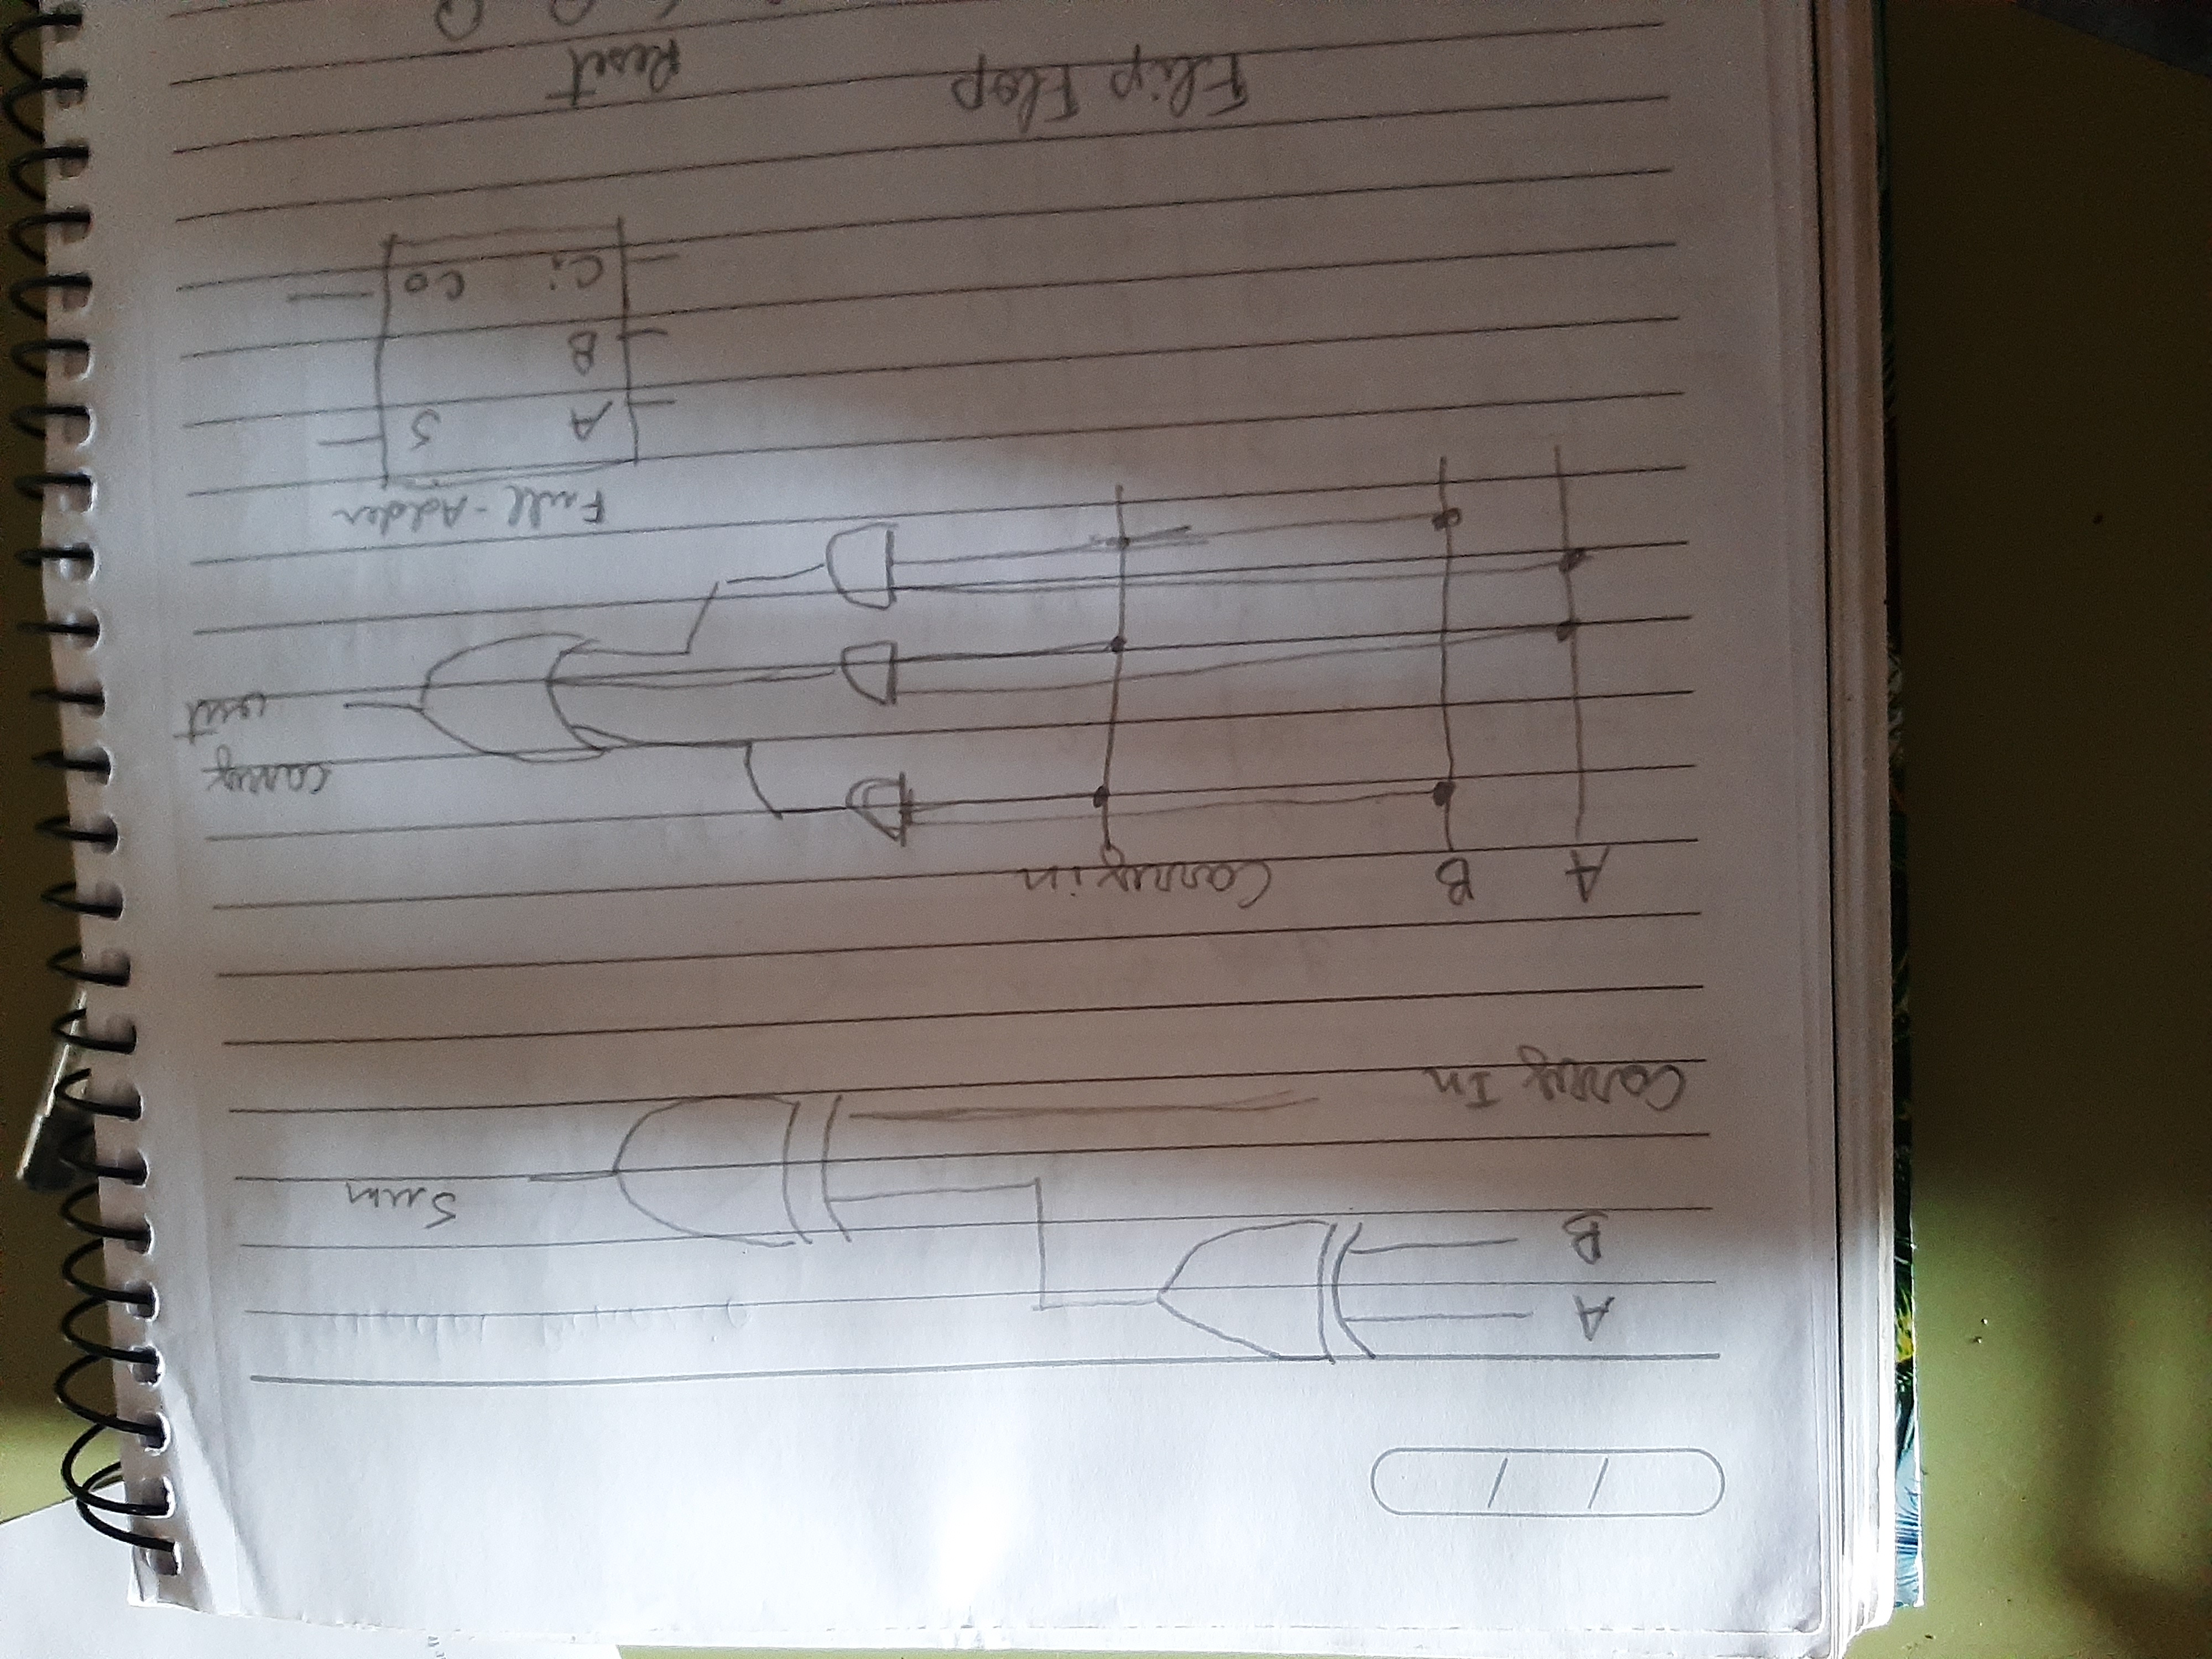 A
B
Sum
Carry In
A B Carry in
carry
out
Full-Adder
A S
B
Ci Co
Flip Flop Reset